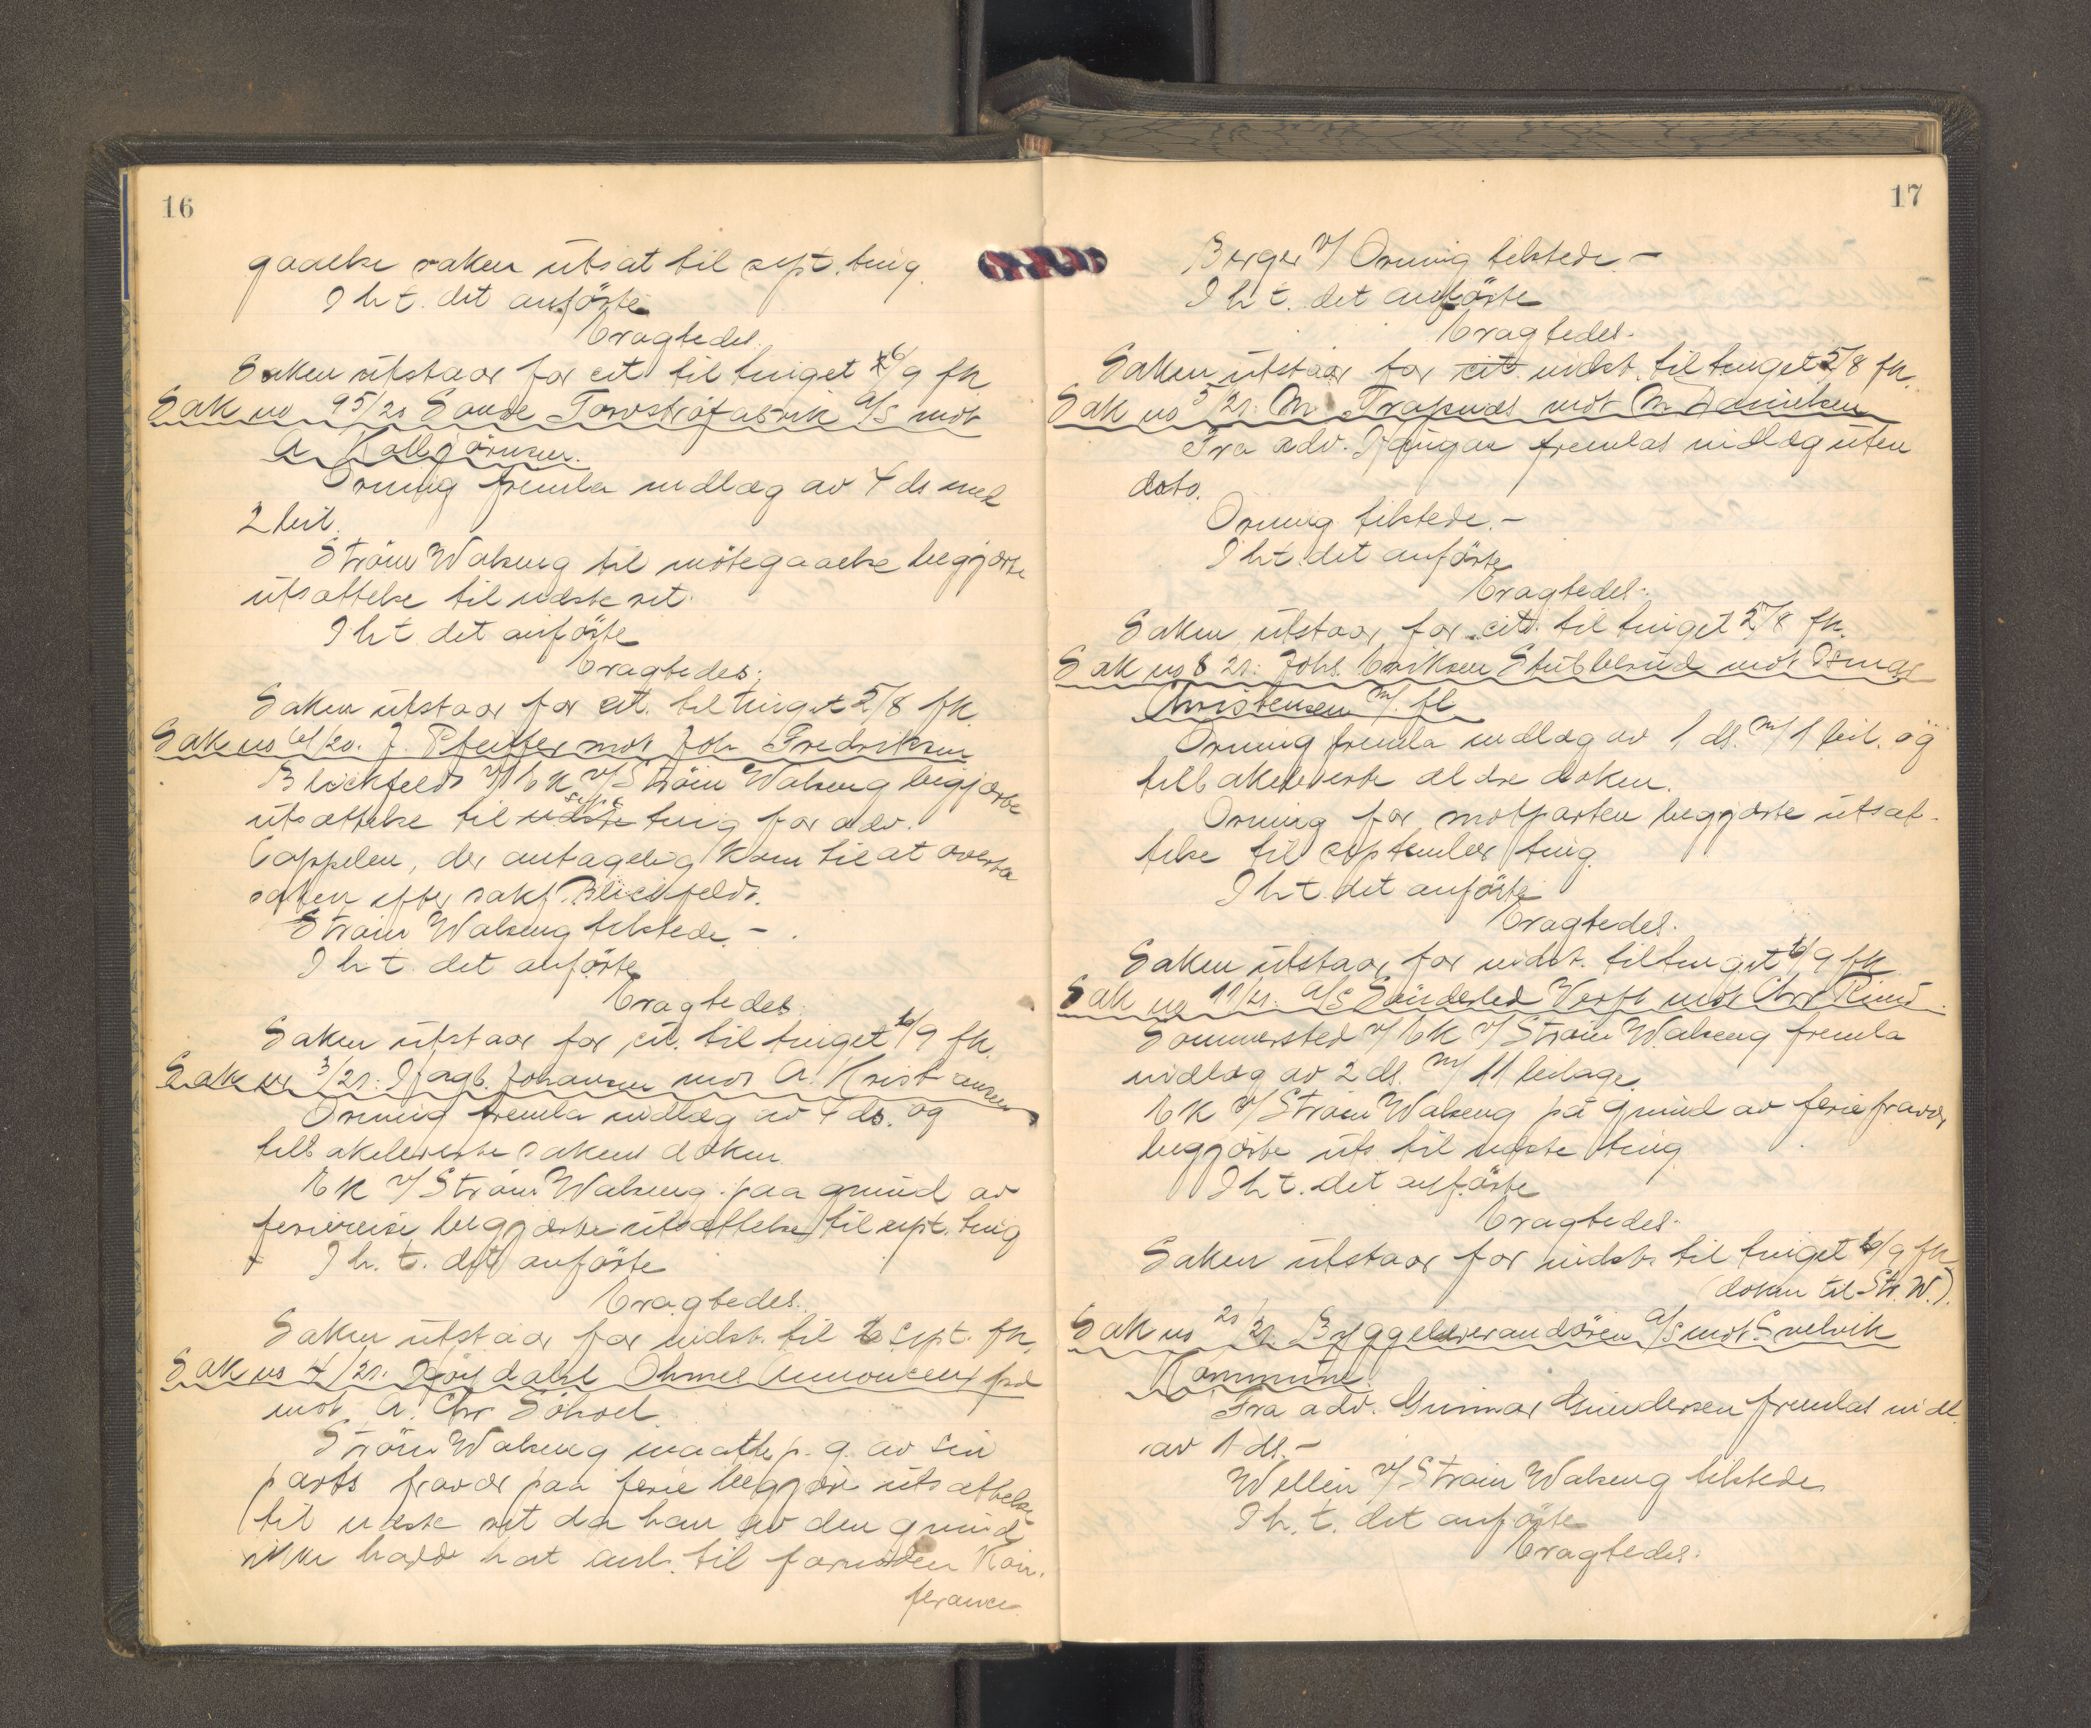 16
gaaelse saken utsat til sept. ting.
I h t. det anförte
Eragtedes.
Saken utstaar for cit til tinget 6/9 fk.
Sak no 95/20 Sande Torvströfabrik A/S mot
A. Kolbjörnsen.
Orning fremla indlæg av 4 ds med
2 bil.
Ström Walseng til mötegaaelse begjærte
utsættelse til næste ret.
I h t det anförte
Eragtedes:
Saken utstaar for cit. til tinget 5/8 fk.
Sak no 61/20. J. Pfeiffer mot Joh Fredriksen
Blickfeldt v/ E K v/ Ström Walseng begjærte
utsættelse til sept ting for adv.
Cappelen, der antagelig kom til at overta
saken efter sakf. Blickfeldt.
Ström Walseng tilstede. –
I h t. det anförte
Eragtedes:
Saken utstaar for cit. til tinget 6/9 fk.
Sak no 3/21. Johansen mot A. Kristiansen
Orning fremla indlæg av 4 ds. og
tilbakeleverte sakens doken.
E K v/ Ström Walseng paa grund av
feriereise begjærte utsættelse til sept. ting
I h. t. det anförte
Eragtedes.
Saken utstaar for indst. til 6 sept. fk.
Sak no 4/21. Höydahl Ohmes Annonceexped
mot A. Chr Söhoel.
Ström Walseng maatte p. g. av sin
parts fravær paa ferie begjære utsættelse
til næste ret da han av den grund
ikke hadde hat anl. til fornöden kon-
ferance
17
Berger v/ Orning tilstede. –
I h t. det anförte
Eragtedes.
Saken utstaar for cit. indst. til tinget 5/8 fk.
Sak no 5/21. M. mot M. Danielsen
Fra adv. fremlas indlæg uten
dato.
Orning tilstede. –
I h t det anförte
Eragtedes.
Saken utstaar for cit. til tinget 5/8 fk.
Sak no 8 21. Johs. Eriksen Stubberud mot
Christensen m/ fl
Orning fremla indlæg av 1 ds. m/ 1 bil. og
tilbakeleverte ældre doken.
Orning for motparten begjærte utsæt-
telse til september ting.
I h t. det anförte
Eragtedes.
Saken utstaar for indst. til tinget 6/9 fk
Sak no 11/21. A/S Verft mot Chr
Sommersted v/ E K v/ Ström Walseng fremla
indlæg av 2 ds. m/ 11 bilage.
E K v/ Ström Walseng på grund av feriefravær
begjærte uts. til næste ting
I h t. det anförte
Eragtedes.
Saken utstaar for indst. til tinget 6/9 fk.
(doken til Str. W.).
Sak no 21. Byggeleverandören A/S mot Svelvik
Kommune.
Fra adv. Gunnar Gundersen fremlas indl.
av 1 ds. –
Wellen v/ Ström Walseng tilstede
I h. t. det anförte
Eragtedes.